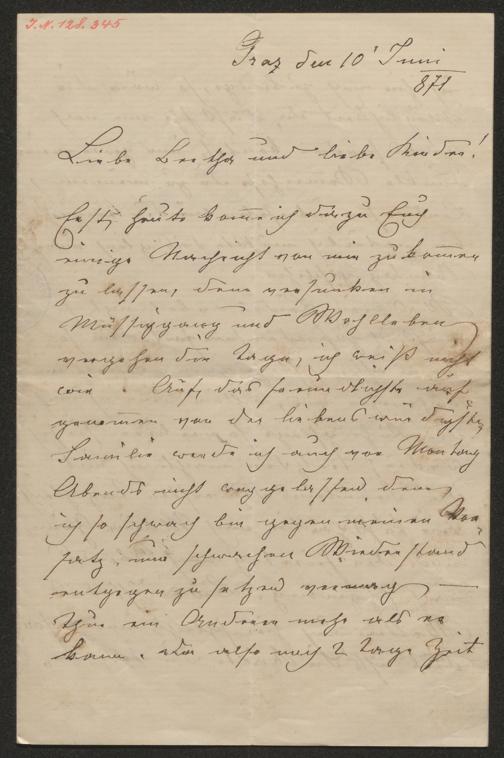 J.N. 128.345
Graz den 10' Juni
871
Liebe Bertha und liebe Kinder!
Erst heute komme ich dazu Euch
einige Nachricht von mir zukommen
zu lassen, denn versunken in
Müssiggang und Wohlleben
vergehen die Tage, ich weiß nicht
wie. Auf das freundlichste auf-
genommen von der liebenswürdigsten
Familie werde ich auch vor Montag
Abends nicht weggelassen, denn
ich so schwach bin gegen meinen Vor-
satz, nur schwachen Wiederstand
entgegen zu setzen vermag —
thue ein Anderer mehr als er
kann. Da also noch 2 Tage Zeit